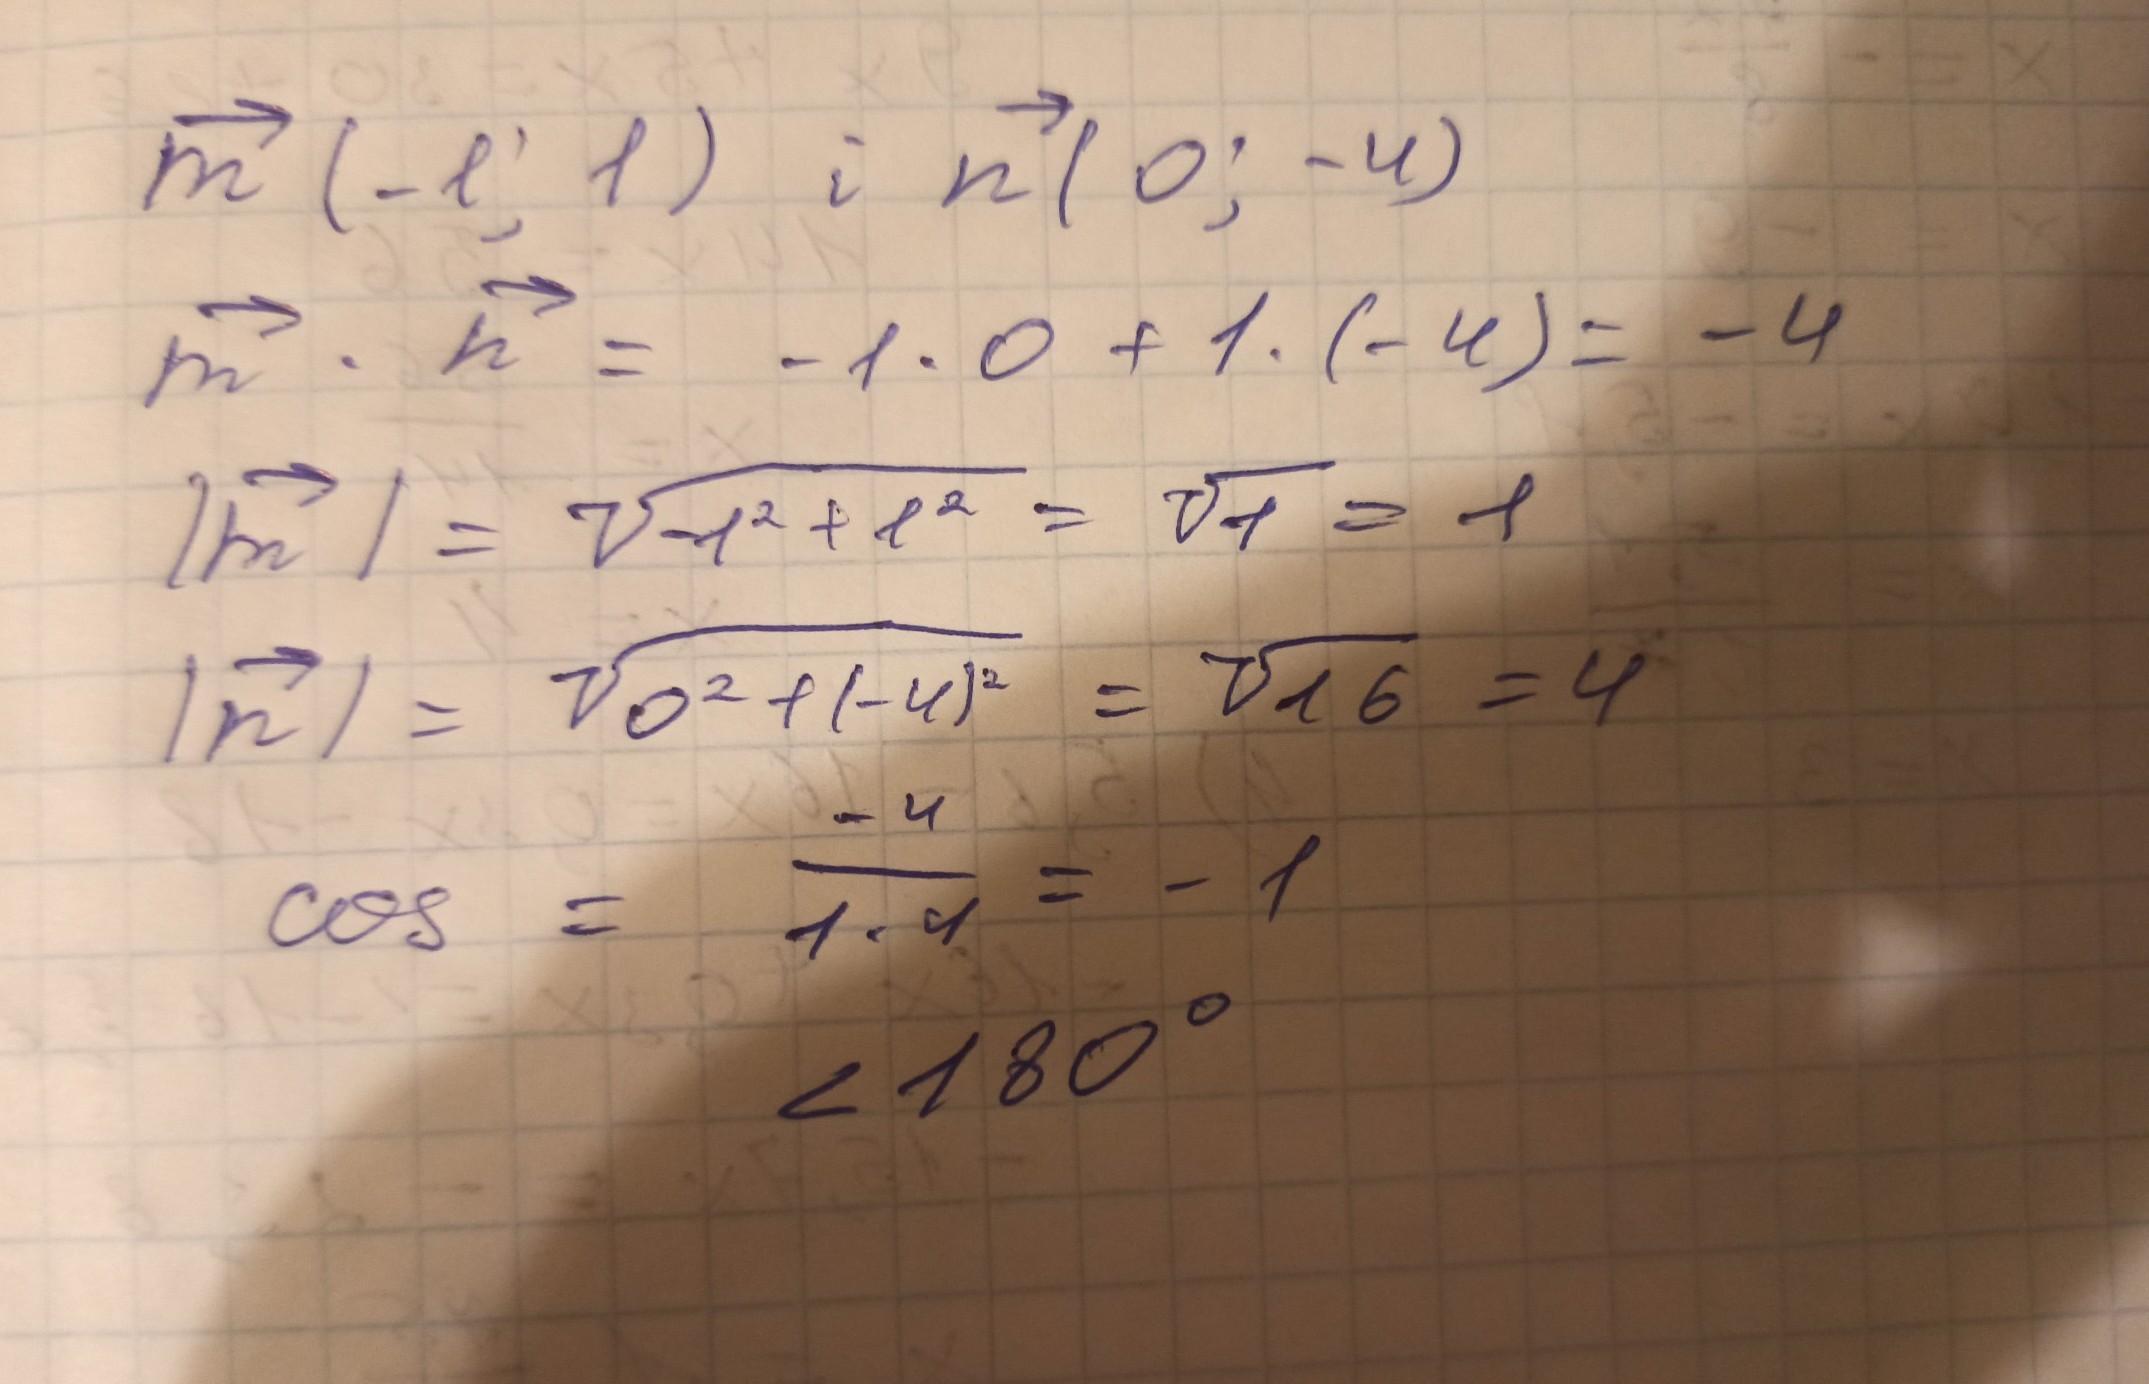 m⃗ (-1; 1) і n⃗ (0; -4)
m⃗ · n⃗ = -1·0 + 1·(-4) = -4
|m⃗| = √-1² + 1² = √1 = 1
|n⃗| = √0² + (-4)² = √16 = 4
cos = -4/1·4 = -1
<180°